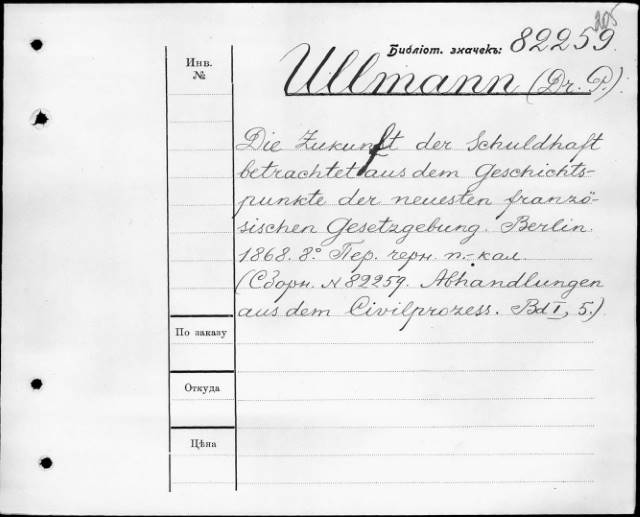 205
Библіот. значекъ: 82259.
Инв.
№
Ullmann (Dr. P.).
Die Zukunft der Schuldhaft
betrachtet aus dem Geschichts-
punkte der neuesten franzö-
sischen Gesetzgebung. Berlin.
1868. 8°. Пер. черн. п.-кал.
(Сборн. № 82259. Abhandlungen
aus dem Civilprozess. Bd I, 5.)
По заказу
Откуда
Цѣна